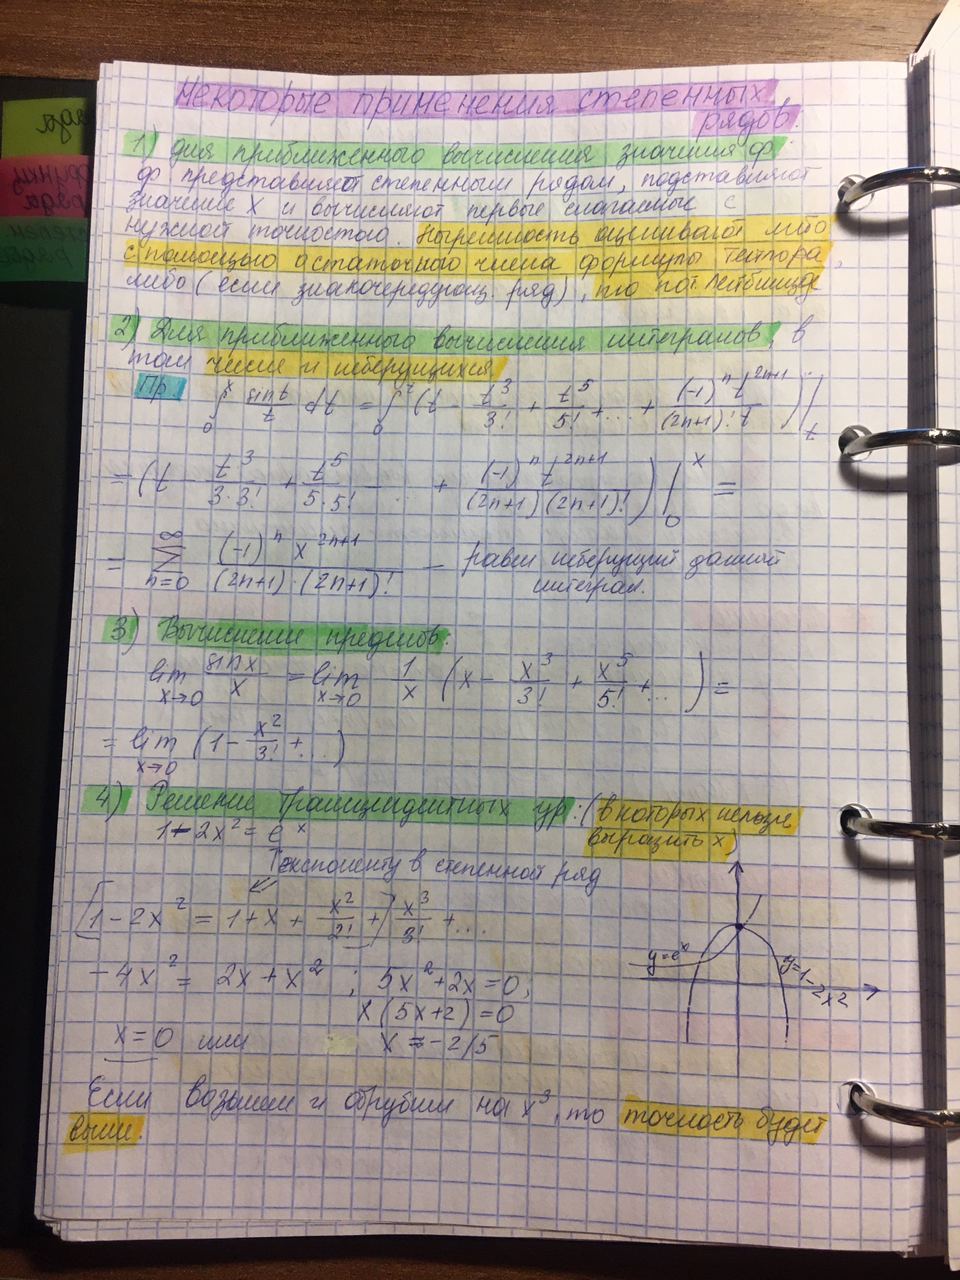 Некоторые применения степенных
рядов.
1) Для приближенного вычисления значения ф.
ф представляют степенным рядом, подставляют
значение x и вычисляют первые слагаемые с
нужной точностью. Погрешность оценивают либо
с помощью остаточного члена формулы Тейлора,
либо (если знакочередующ. ряд), то по т Лейбница
2) Для приближенного вычисления интегралов, в
том числе и неберущихся.
Пр. ∫₀ˣ sint/t dt = ∫₀ˣ (t - t³/3! + t⁵/5! + ... + (-1)ⁿt²ⁿ⁺¹/(2n+1)!t)|t
= (t - t³/3·3! + t⁵/5·5! - ... + (-1)ⁿt²ⁿ⁺¹/(2n+1)(2n+1)!)|₀ˣ =
= ∑ₙ₌₀^∞ (-1)ⁿx²ⁿ⁺¹/(2n+1)·(2n+1)! – равен неберущий данный
интеграл.
3) Вычисление пределов:
lim x→0 sinx/x = lim x→0 1/x (x - x³/3! + x⁵/5! + ...) =
= lim x→0 (1 - x²/3! + ...)
4) Решение трансцендентных ур: (в которых нельзя
выразить x)
1 - 2x² = eˣ
экспоненту в степенной ряд
[1 - 2x² = 1 + x + x²/2! +] x³/3! + ...
y=eˣ
y=1-2x2
-4x² = 2x + x² ; 5x² + 2x = 0,
x(5x+2) = 0
x = 0 или x = -2/5
Если возьмем и обрубим на x³, то точность будет
выше.
ряда
ряда
степен
рядов